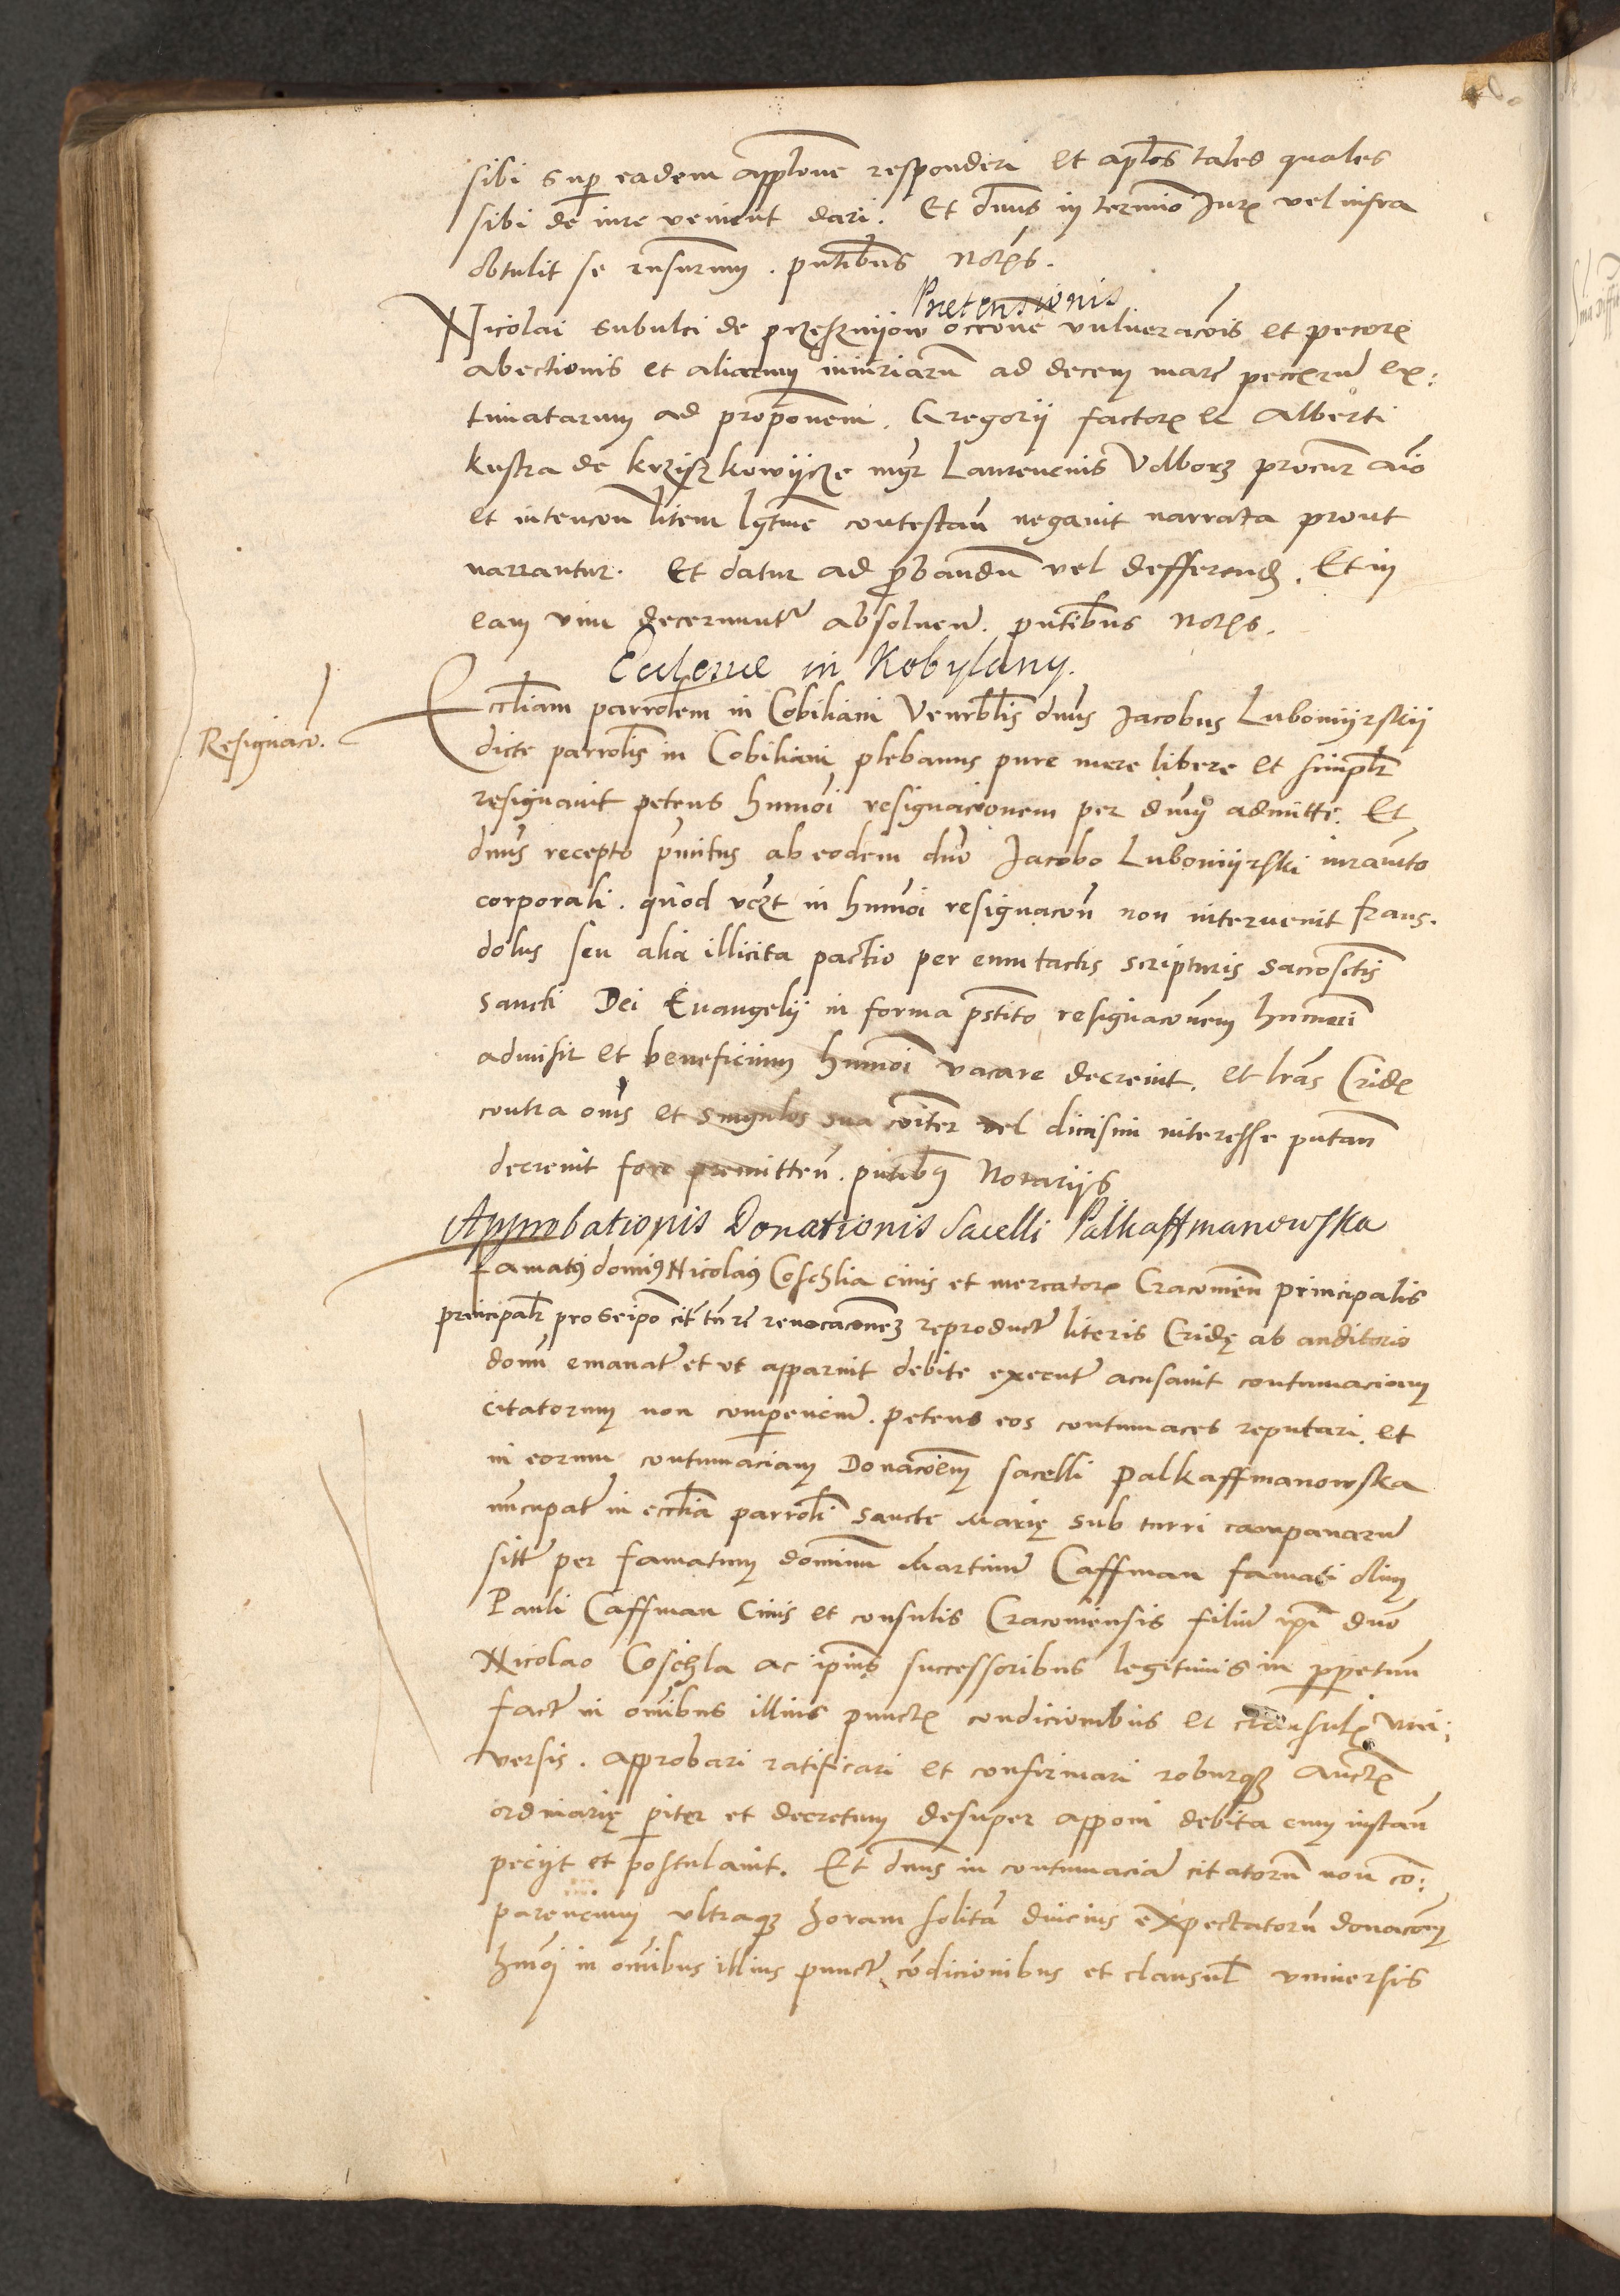 sibi sup eadem applone responderi et aplos tales quales
sibi de iure venient dari. Et dnus in termino Jur vel infra
obtulit se rnsurum. pntibus Notris.
Pretensionis
Nicolai subulci de przeszmijow occone vulneracois et pecor
abectionis et aliarum iniuriaru ad decem marc pecce ex:
timatarum ad proponem. Gregorij factor et Alberti
kustra de krziszkowijcze mgr Laurencius Vdborz procur aio
et intencon litem lgtme contestan negauit narrata prout
narrantur. Et datur ad probandu vel defferend. Et in
eam vim decernuntr absoluen. pntibus Notris.
Ecclesiae in Kobylany.
Resignaco.
Eccliam parrolem in Cobiliani Venrblis dnus Jacobus Lubomijrskij
dicte parrolis in Cobiliani plebanus pure mere libere et simplr
resignauit petens hnmoi resignacionem per dnum admitti. Et
dnus recepto pnitus ab eodem dno Jacobo Lubomijrski iuramto
corporali. quod vczt in hnmoi resignacon non interuenit fraus.
dolus seu alia illicita pactio per eum tactis scripturis sacrosctis
sancti Dei Euangelij in forma pstito resignaconem hnmoi
admisit et beneficium hnmoi vacare decreuit. et lras Crid
contra oms et singulos sua coiter vel diuisim interesse putan
decreuit fore premitten. pntibus Notarijs
Approbationis Donationis Sacelli Palkaffmanowska
Famatus dominus Nicolaus Coschla ciuis et mercator Cracouien principalis
principalr pro se ipso cit tn re reuocaconem reproductr literis Cridę ab auditorio
domi emanatr et vt apparuit debite executr acusauit contumaciam
citatorum non comparencium. petens eos contumaces reputari. et
in eorum contumaciam Donacoem sacelli palkaffmanowska
nuncupatr in ecclia parroli sancte Marię sub turri campanaru
sitr per famatum dominum Martinum Caffman famati olim
Pauli Caffman Ciuis et consulis Cracouiensis filium ipi dno
Nicolao Coschla ac ipius successoribus legitimis in perpetuum
factr in omibus illius punct condicionibus et clausul vni:
versis. approbari ratificari et confirmari roburque Auctor
ordinarię piter et decretum desuper apponi debita cum instan
pecijt et postulauit. Et dnus in contumacia citatoru non co:
parencium vltraque horam solita diucius expectatoru donacoem
hnmoi in omibus illius punctr condicionibus et clausul vniuersis